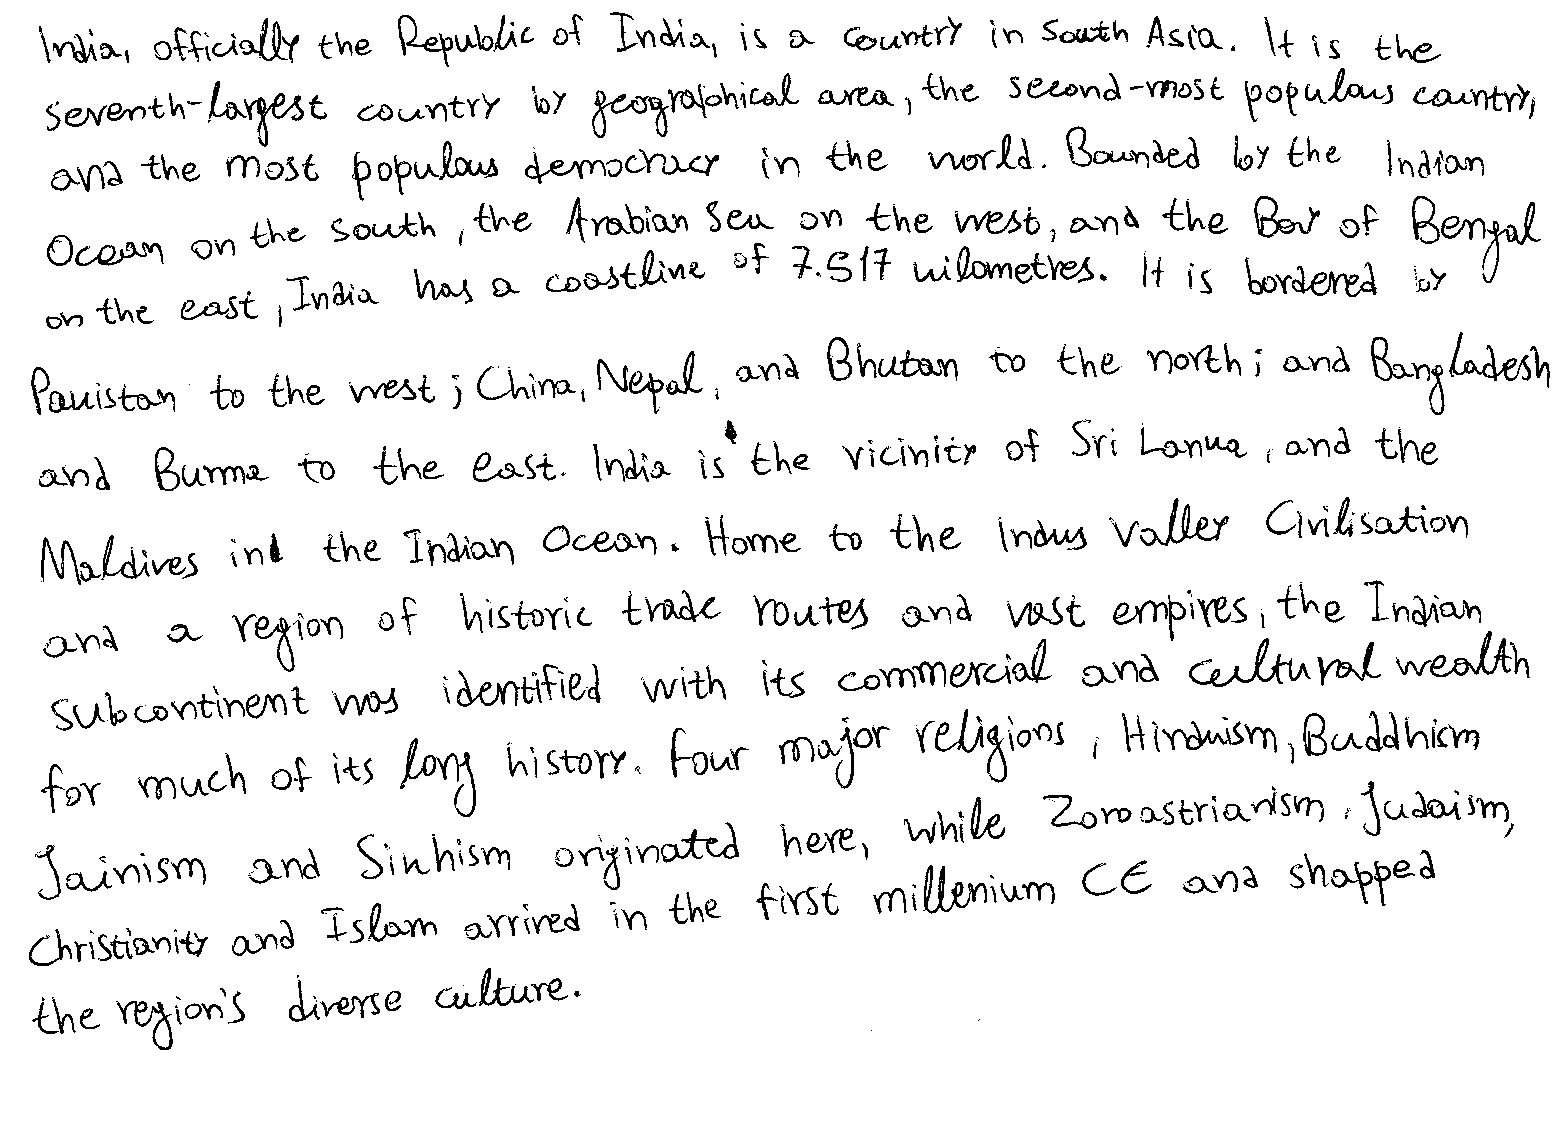 India, officially the Republic of India, is a country in South Asia. It is the
seventh-largest country by geographical area, the second-most populous country,
and the most populous democracy in the world. Bounded by the Indian
Ocean on the south, the Arabian Sea on the west, and the Bay of Bengal
on the east, India has a coastline of 7.517 kilometres. It is bordered by
Pakistan to the west; China, Nepal, and Bhutan to the north; and Bangladesh
and Burma to the east. India is the vicinity of Sri Lanka, and the
Maldives in the Indian Ocean. Home to the Indus Valley Civilisation
and a region of historic trade routes and vast empires, the Indian
subcontinent was identified with its commercial and cultural wealth
for much of its long history. Four major religions, Hinduism, Buddhism
Jainism and Sikhism originated here, while Zoroastrianism, Judaism,
Christianity and Islam arrived in the first millenium CE and shapped
the region's diverse culture.